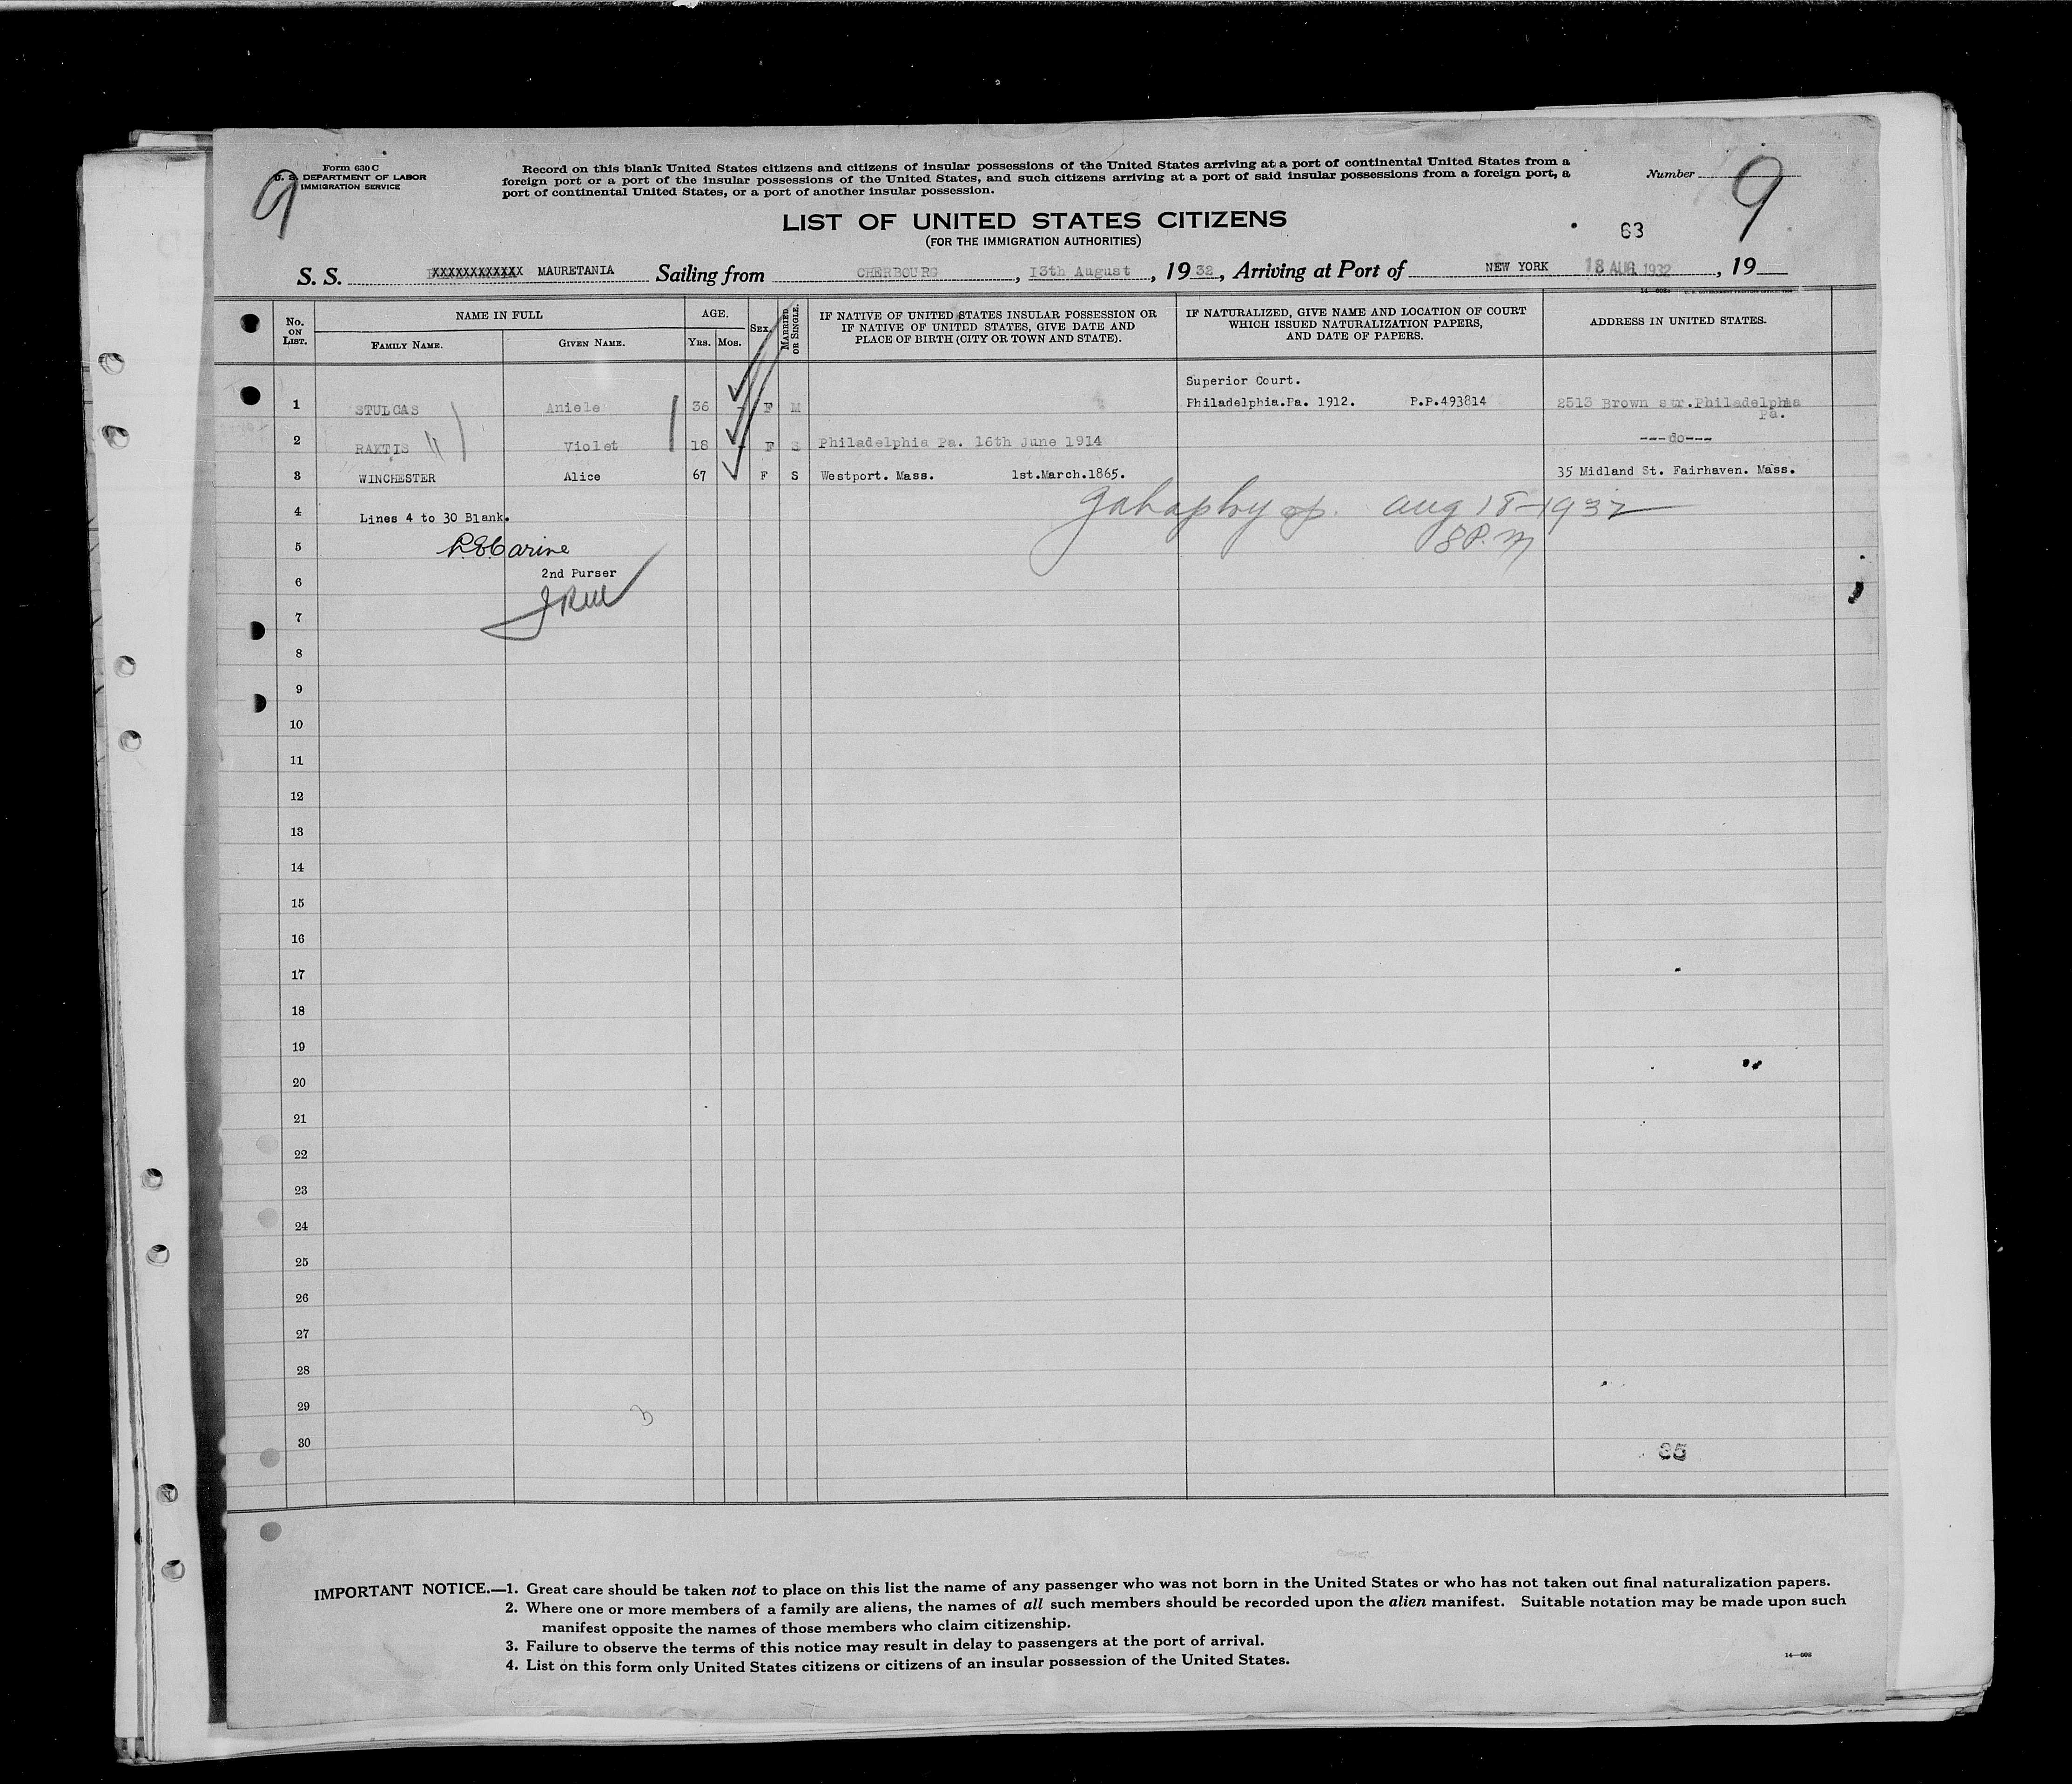 Form 630 C
U. S. DEPARTMENT OF LABOR
IMMIGRATION SERVICE
9
Record on this blank United States citizens and citizens of insular possessions of the United States arriving at a port of continental United States from a
foreign port or a port of the insular possessions of the United States, and such citizens arriving at a port of said insular possessions from a foreign port, a
port of continental United States, or a port of another insular possession.
Number 9
LIST OF UNITED STATES CITIZENS
(FOR THE IMMIGRATION AUTHORITIES)
63
S. S. XXXXXXXXXXXX MAURETANIA Sailing from CHERBOURG, 13th August, 1932, Arriving at Port of NEW YORK 18 AUG 1932, 19
No. ON LIST.
NAME IN FULL
FAMILY NAME.
GIVEN NAME.
AGE.
YRS.
MOS.
SEX.
MARRIED OR SINGLE.
IF NATIVE OF UNITED STATES INSULAR POSSESSION OR
IF NATIVE OF UNITED STATES, GIVE DATE AND
PLACE OF BIRTH (CITY OR TOWN AND STATE).
IF NATURALIZED, GIVE NAME AND LOCATION OF COURT
WHICH ISSUED NATURALIZATION PAPERS,
AND DATE OF PAPERS.
ADDRESS IN UNITED STATES.
Superior Court.
1 STULGAS Aniele 36 - F M Philadelphia.Pa. 1912. P.P.493814 2513 Brown str.Philadelphia
Pa.
2 Violet 18 - F S Philadelphia Pa. 16th June 1914 ---do---
3 WINCHESTER Alice 67 F S Westport. Mass. 1st.March.1865. 35 Midland St. Fairhaven. Mass.
4 Lines 4 to 30 Blank.
Aug 18-1932
8 P.M
5
2nd Purser
6
7
8
9
10
11
12
13
14
15
16
17
18
19
20
21
22
23
24
25
26
27
28
29
3
30
IMPORTANT NOTICE.—1. Great care should be taken not to place on this list the name of any passenger who was not born in the United States or who has not taken out final naturalization papers.
2. Where one or more members of a family are aliens, the names of all such members should be recorded upon the alien manifest. Suitable notation may be made upon such
manifest opposite the names of those members who claim citizenship.
3. Failure to observe the terms of this notice may result in delay to passengers at the port of arrival.
4. List on this form only United States citizens or citizens of an insular possession of the United States.
14—608